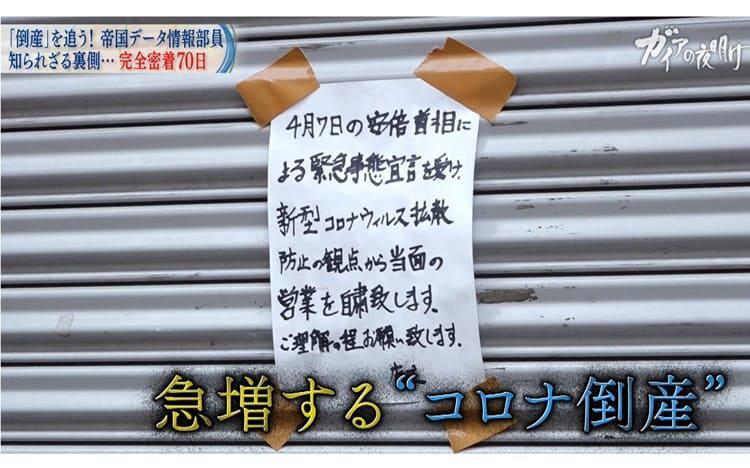 「倒産」を追う!帝国データ情報部員
知られざる裏側…完全密着70日
ガイアの夜明け
4月7日の安倍首相に
よる緊急事態宣言を受け、
新型コロナウィルス拡散
防止の観点から当面の
営業を自粛致します。
ご理解の程お願い致します。
急増する“コロナ倒産”